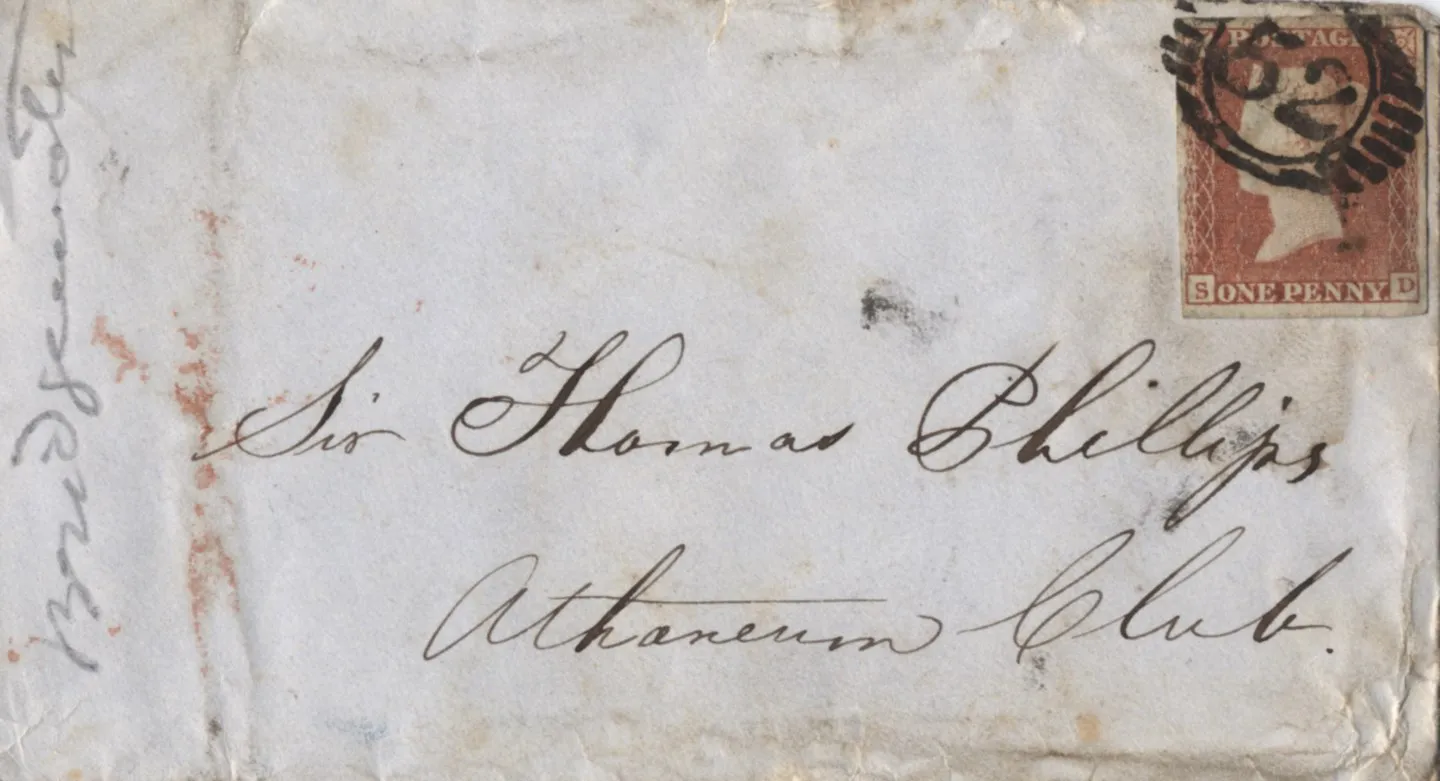 POSTAGE
62
S ONE PENNY D
Sir Thomas Phillips
Athaneum Club.
Bridgewater